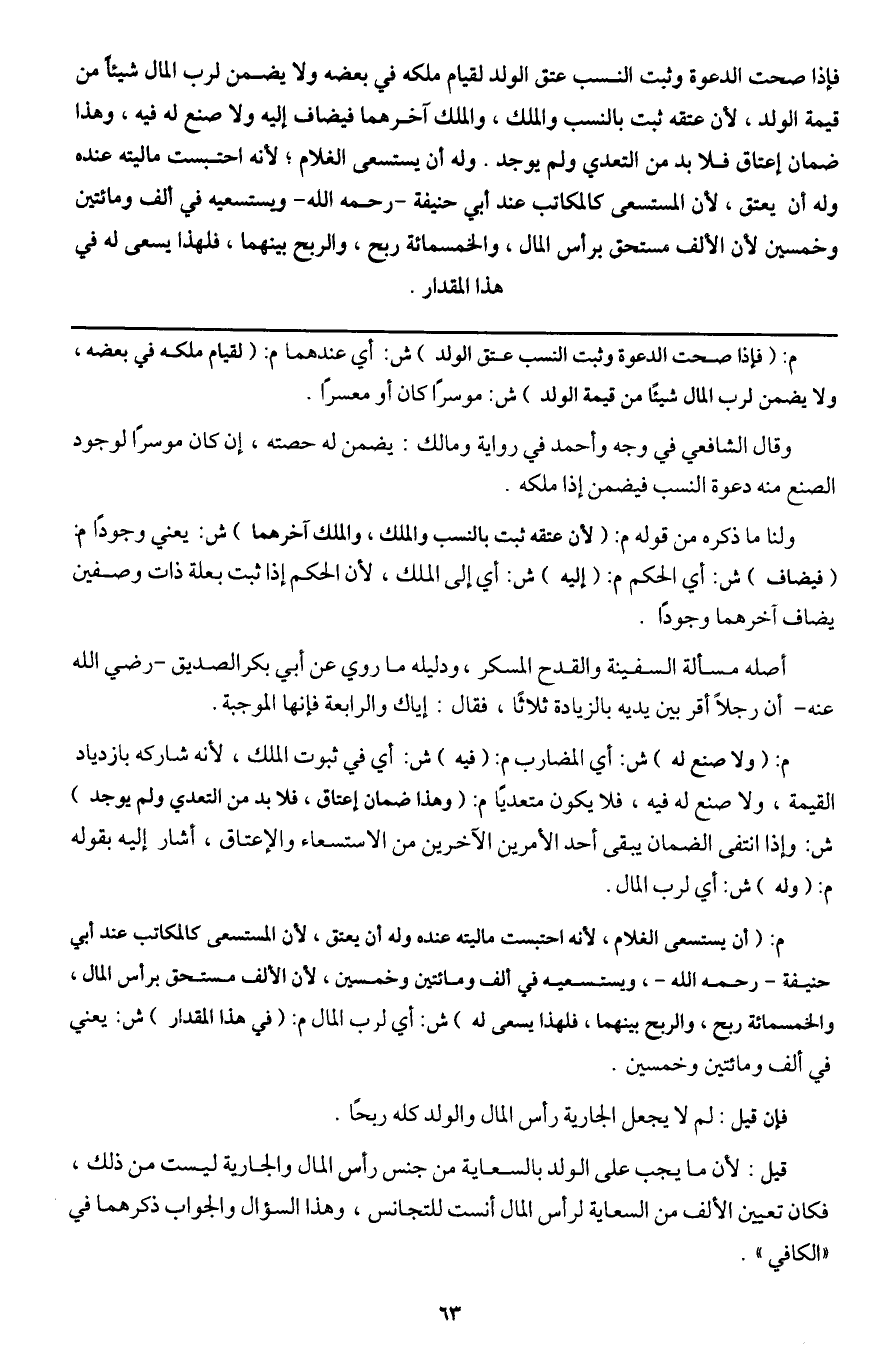 فإذا صحت الدعوة وثبت النسب عتق الولد لقيام ملكه في بعضه ولا يضمن لرب المال شيئاً من
قيمة الولد ، لأن عتقه ثبت بالنسب والملك ، والملك آخرهما فيضاف إليه ولا صنع له فيه ، وهذا
ضمان إعتاق فلا بد من التعدي ولم يوجد . وله أن يستسعى الغلام ؛ لأنه احتبست ماليته عنده
وله أن يعتق ، لأن المستسعى كالمكاتب عند أبي حنيفة -رحمه الله- ويستسعيه في ألف ومائتين
وخمسين لأن الألف مستحق برأس المال ، والخمسمائة ربح ، والربح بينهما ، فلهذا يسعى له في
هذا المقدار .
م: ( فإذا صحت الدعوة وثبت النسب عتق الولد ) ش: أي عندهما م: ( لقيام ملكه في بعضه ،
ولا يضمن لرب المال شيئًا من قيمة الولد ) ش: موسرًا كان أو معسرًا .
وقال الشافعي في وجه وأحمد في رواية ومالك : يضمن له حصته ، إن كان موسرًا لوجود
الصنع منه دعوة النسب فيضمن إذا ملكه .
ولنا ما ذكره من قوله م: ( لأن عتقه ثبت بالنسب والملك ، والملك آخرهما ) ش: يعني وجودًا م:
( فيضاف ) ش: أي الحكم م: ( إليه ) ش: أي إلى الملك ، لأن الحكم إذا ثبت بعلة ذات وصفين
يضاف آخرهما وجودًا .
أصله مسألة السفينة والقدح المسكر ، ودليله ما روي عن أبي بكر الصديق -رضي الله
عنه- أن رجلاً أقر بين يديه بالزيادة ثلاثًا ، فقال : إياك والرابعة فإنها الموجبة .
م: ( ولا صنع له ) ش: أي المضارب م: ( فيه ) ش: أي في ثبوت الملك ، لأنه شاركه بازدياد
القيمة ، ولا صنع له فيه ، فلا يكون متعديًا م: ( وهذا ضمان إعتاق ، فلا بد من التعدي ولم يوجد )
ش: وإذا انتفى الضمان يبقى أحد الأمرين الآخرين من الاستسعاء والإعتاق ، أشار إليه بقوله
م: ( وله ) ش: أي لرب المال .
م: ( أن يستسعى الغلام ، لأنه احتبست ماليته عنده وله أن يعتق ، لأن المستسعى كالمكاتب عند أبي
حنيفة - رحمه الله - ، ويستسعيه في ألف ومائتين وخمسين ، لأن الألف مستحق برأس المال ،
والخمسمائة ربح ، والربح بينهما ، فلهذا يسعى له ) ش: أي لرب المال م: ( في هذا المقدار ) ش: يعني
في ألف ومائتين وخمسين .
فإن قيل : لم لا يجعل الجارية رأس المال والولد كله ربحًا .
قيل : لأن ما يجب على الولد بالسعاية من جنس رأس المال والجارية ليست من ذلك ،
فكان تعيين الألف من السعاية لرأس المال أنست للتجانس ، وهذا السؤال والجواب ذكرهما في
«الكافي» .
٦٣